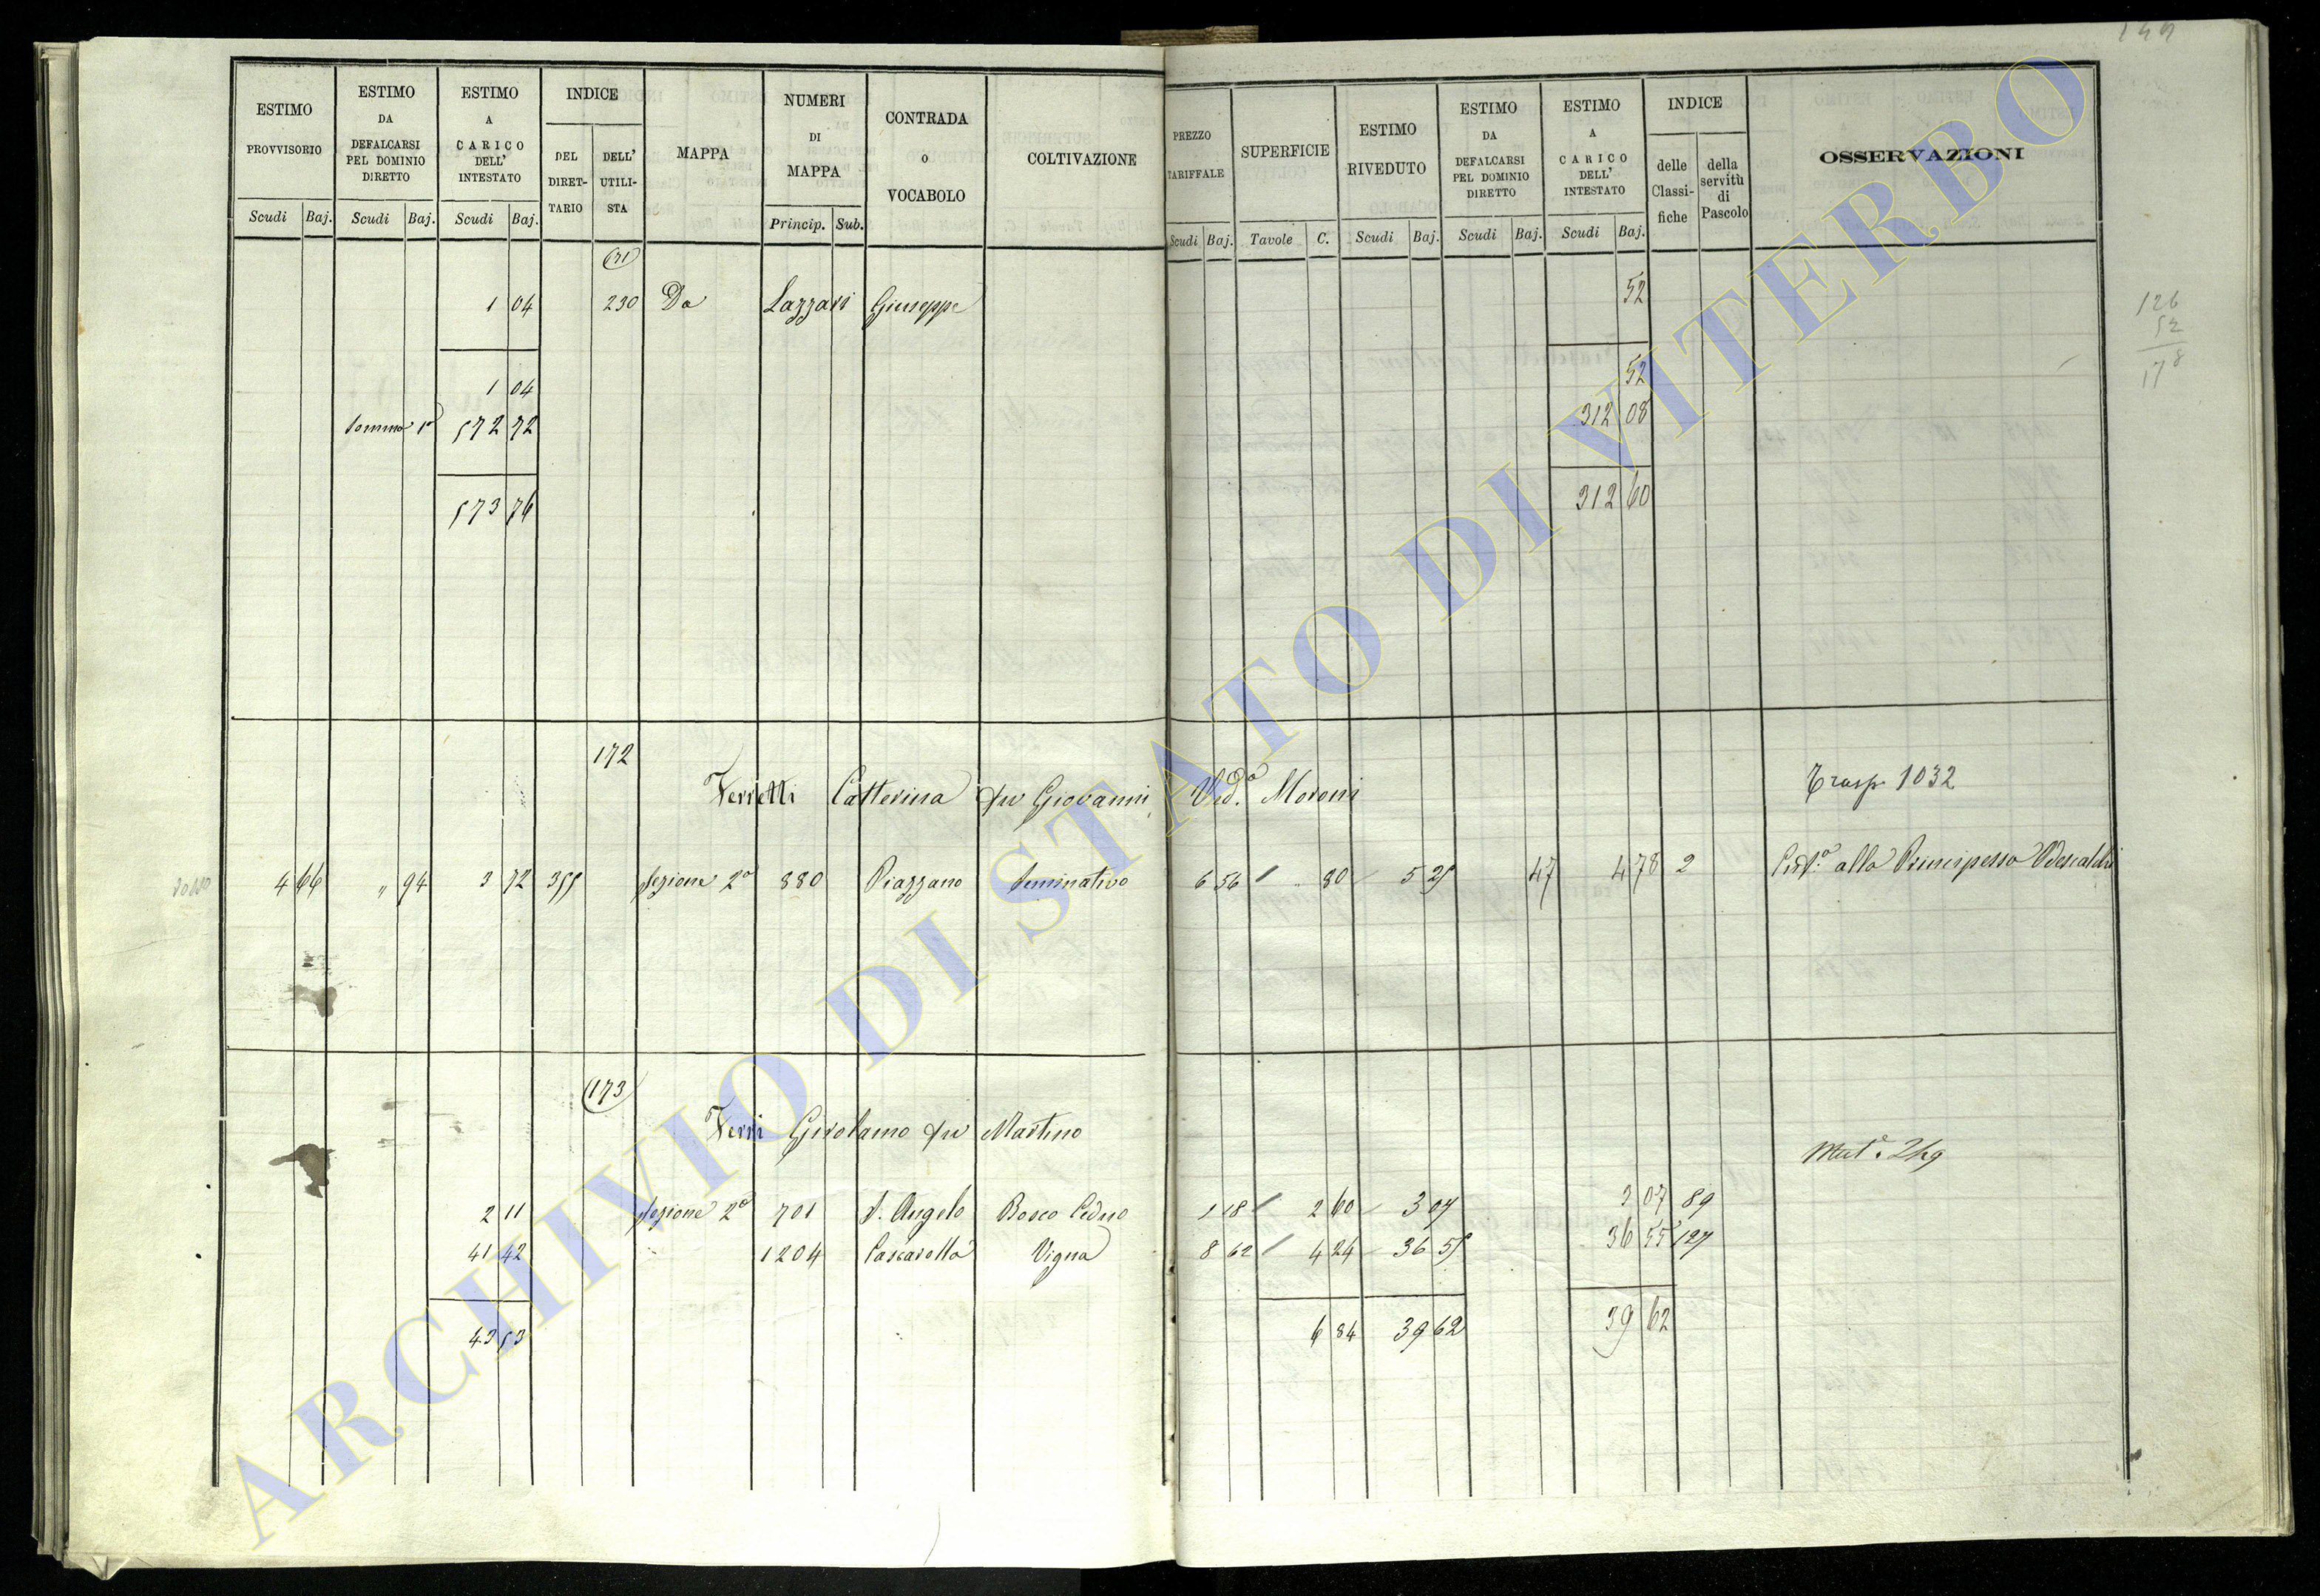 149
ESTIMO PROVVISORIO
ESTIMO DA DEFALCARSI PEL DOMINIO DIRETTO
ESTIMO A CARICO DELL' INTESTATO
INDICE
DEL DIRET-TARIO
DELL' UTILI-STA
MAPPA
NUMERI DI MAPPA
CONTRADA O VOCABOLO
COLTIVAZIONE
PREZZO TARIFFALE
SUPERFICIE
ESTIMO RIVEDUTO
ESTIMO DA DEFALCARSI PEL DOMINIO DIRETTO
ESTIMO A CARICO DELL' INTESTATO
INDICE
delle Classi-fiche
della servitù di Pascolo
OSSERVAZIONI
Scudi Baj. Scudi Baj. Scudi Baj. Princip. Sub. Scudi Baj. Tavole C. Scudi Baj. Scudi Baj. Scudi Baj.
171
1 04 230 Da Lazzari Giuseppe 52
126
52
178
1 04 52
Somma 1a 572 72 312 08
573 76 312 60
172
Verretti Catterina fu Giovanni Ved.a Moroni Trasp 1032
4 66 " 94 3 72 355 Sezione 2a 880 Piazzano Seminativo 6 56 " 80 5 25 47 4 78 2 Risp.a alla Principessa Odescalchi
173
Verri Girolamo fu Martino
2 11 Sezione 2a 701 S. Angelo Bosco Ceduo 1 18 2 60 3 07 3 07 89
41 42 1204 Cascarella Vigna 8 62 4 24 36 55 36 55 127
43 53 6 84 39 62 39 62
ARCHIVIO DI STATO DI VITERBO